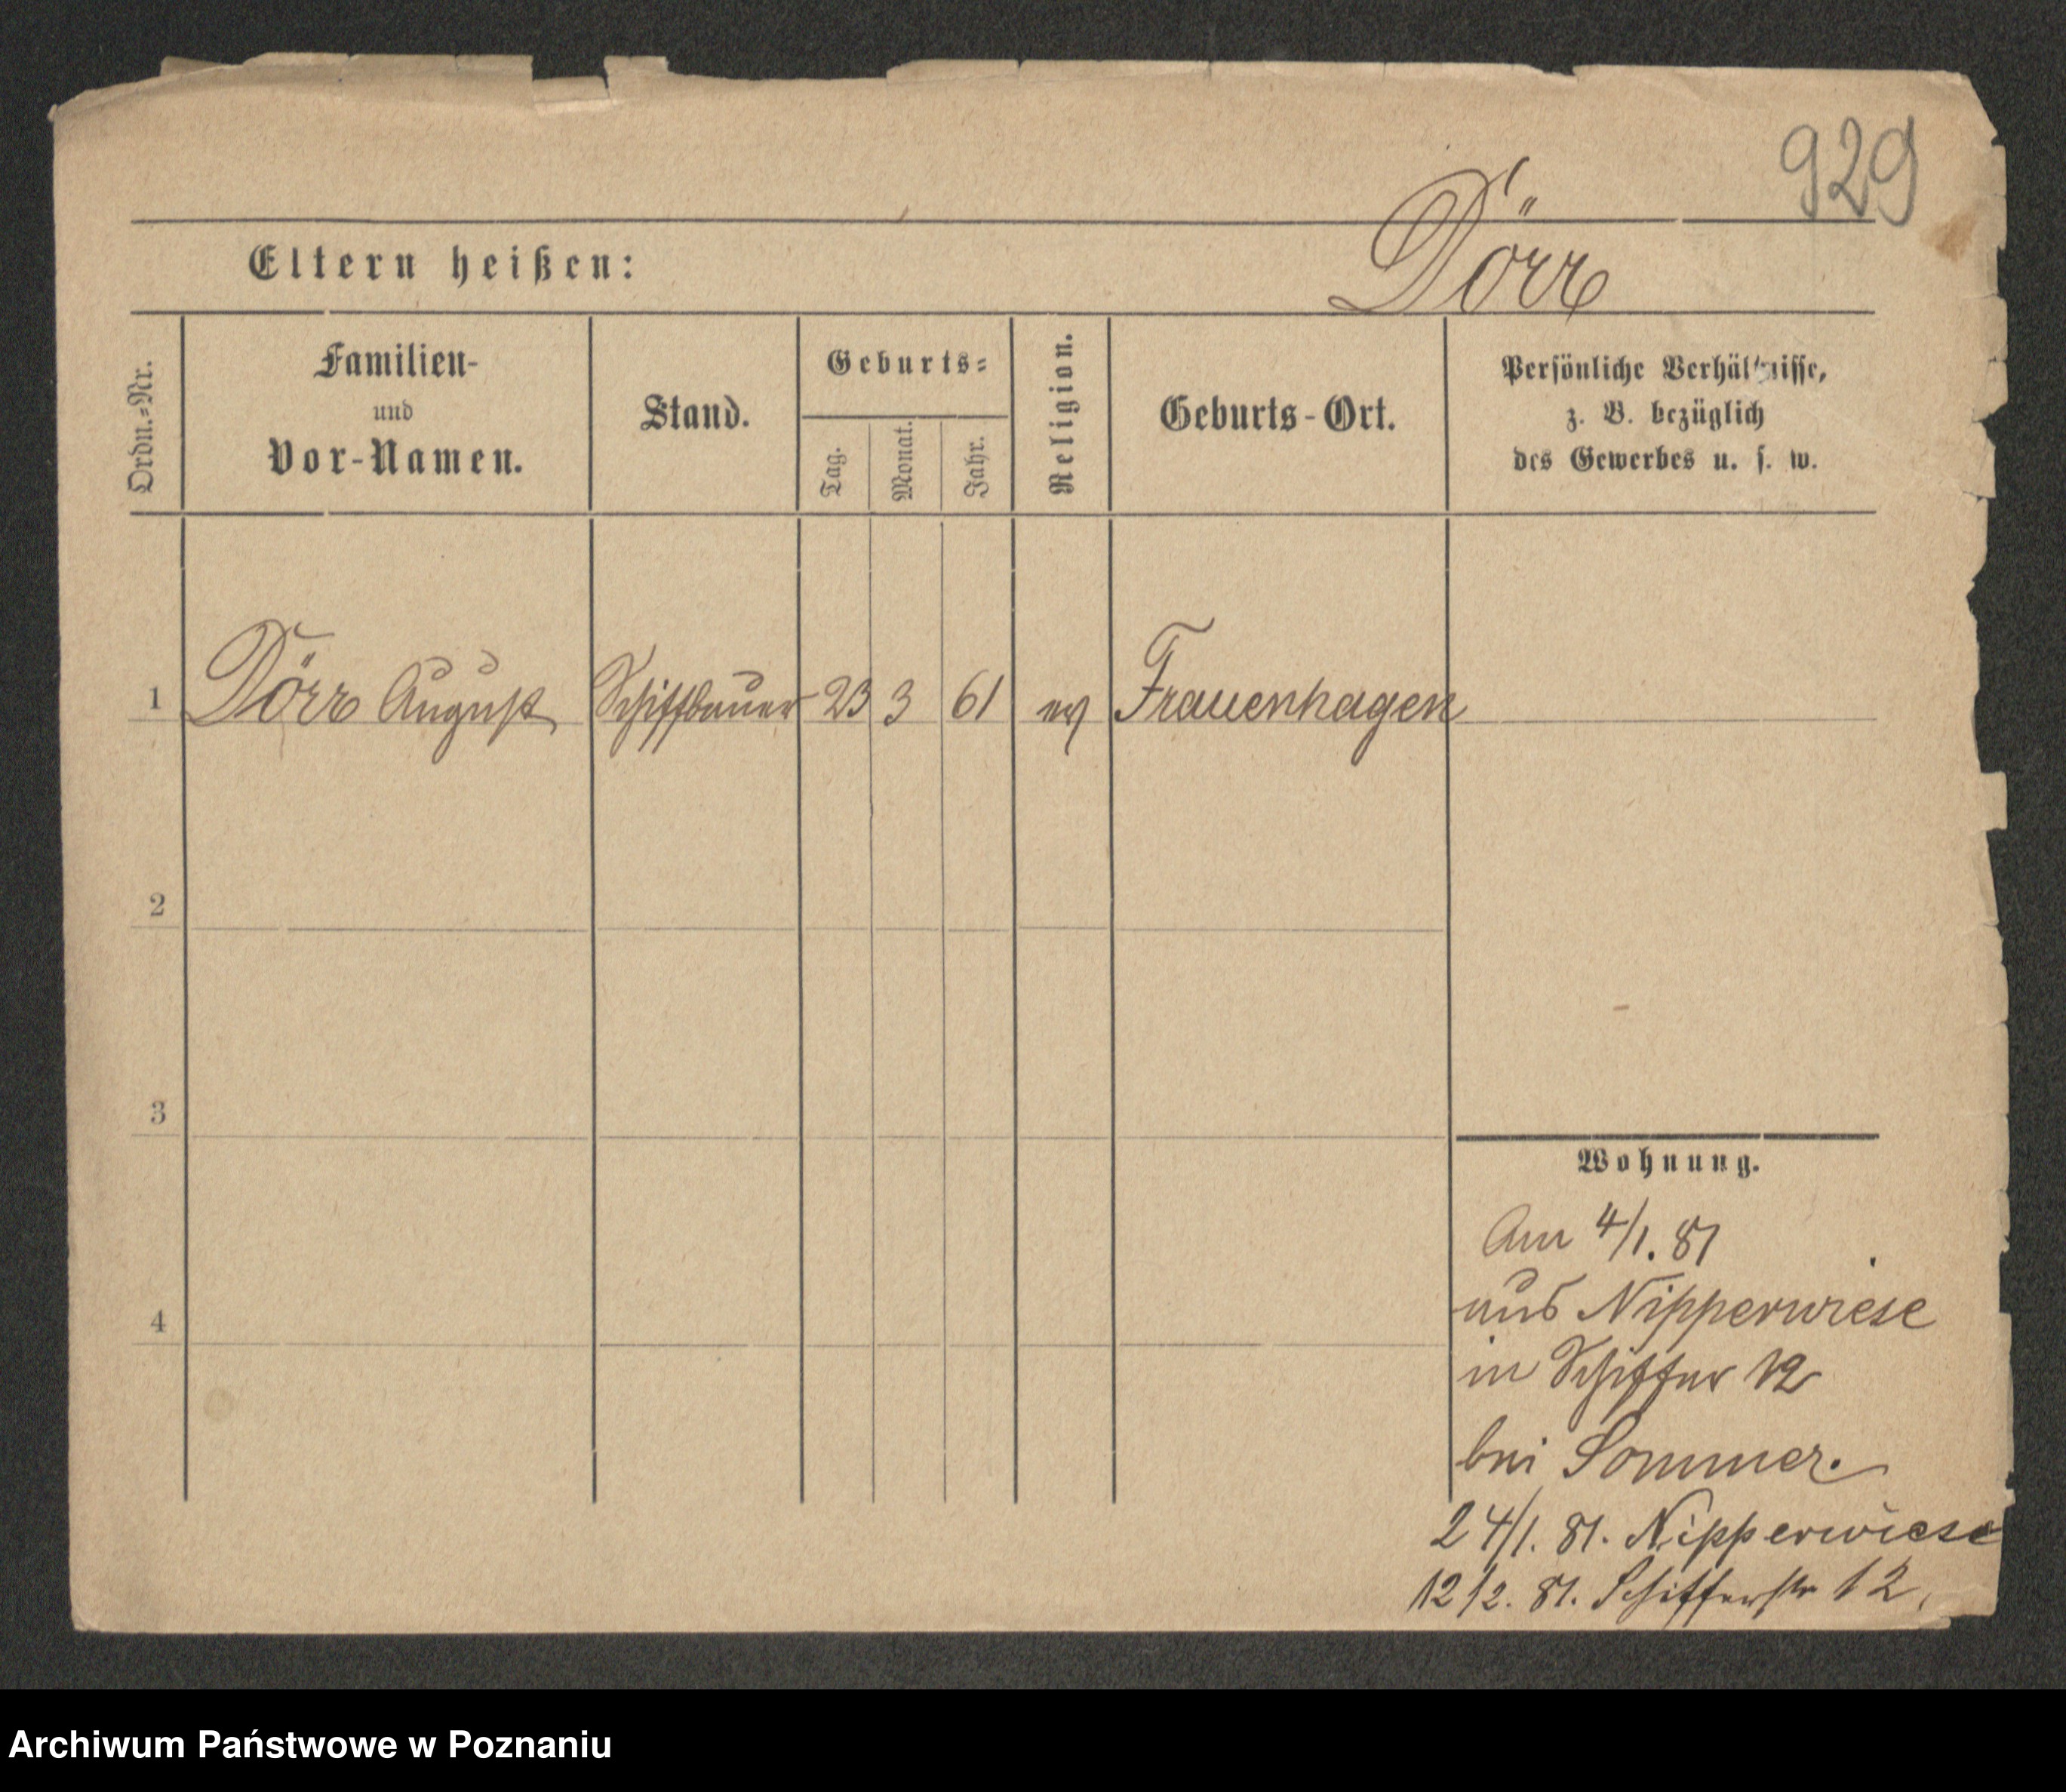 929
Dörr
Eltern heißen:
Ordn.-Nr.
Familien-
und
Vor-Namen.
Stand.
Geburts-
Tag.
Monat.
Jahr.
Religion.
Geburts-Ort.
Persönliche Verhältnisse,
z. B. bezüglich
des Gewerbes u. s. w.
1 Dörr August Schiffbauer 23 3 61 ev Frauenhagen
2
3
4
Wohnung.
Am 4/1. 81
aus Nipperwiese
in Schiffer 12
bei Sommer.
24/1. 81. Nipperwiese
12/2. 81. Schifferstr 12.
Archiwum Państwowe w Poznaniu